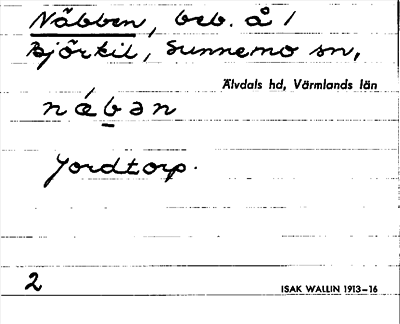 Näbben, beb. å 1
Björkil, Sunnemo sn,
Älvdals hd, Värmlands län
nǽb̲ən
Jordtorp.
2 ISAK WALLIN 1913–16